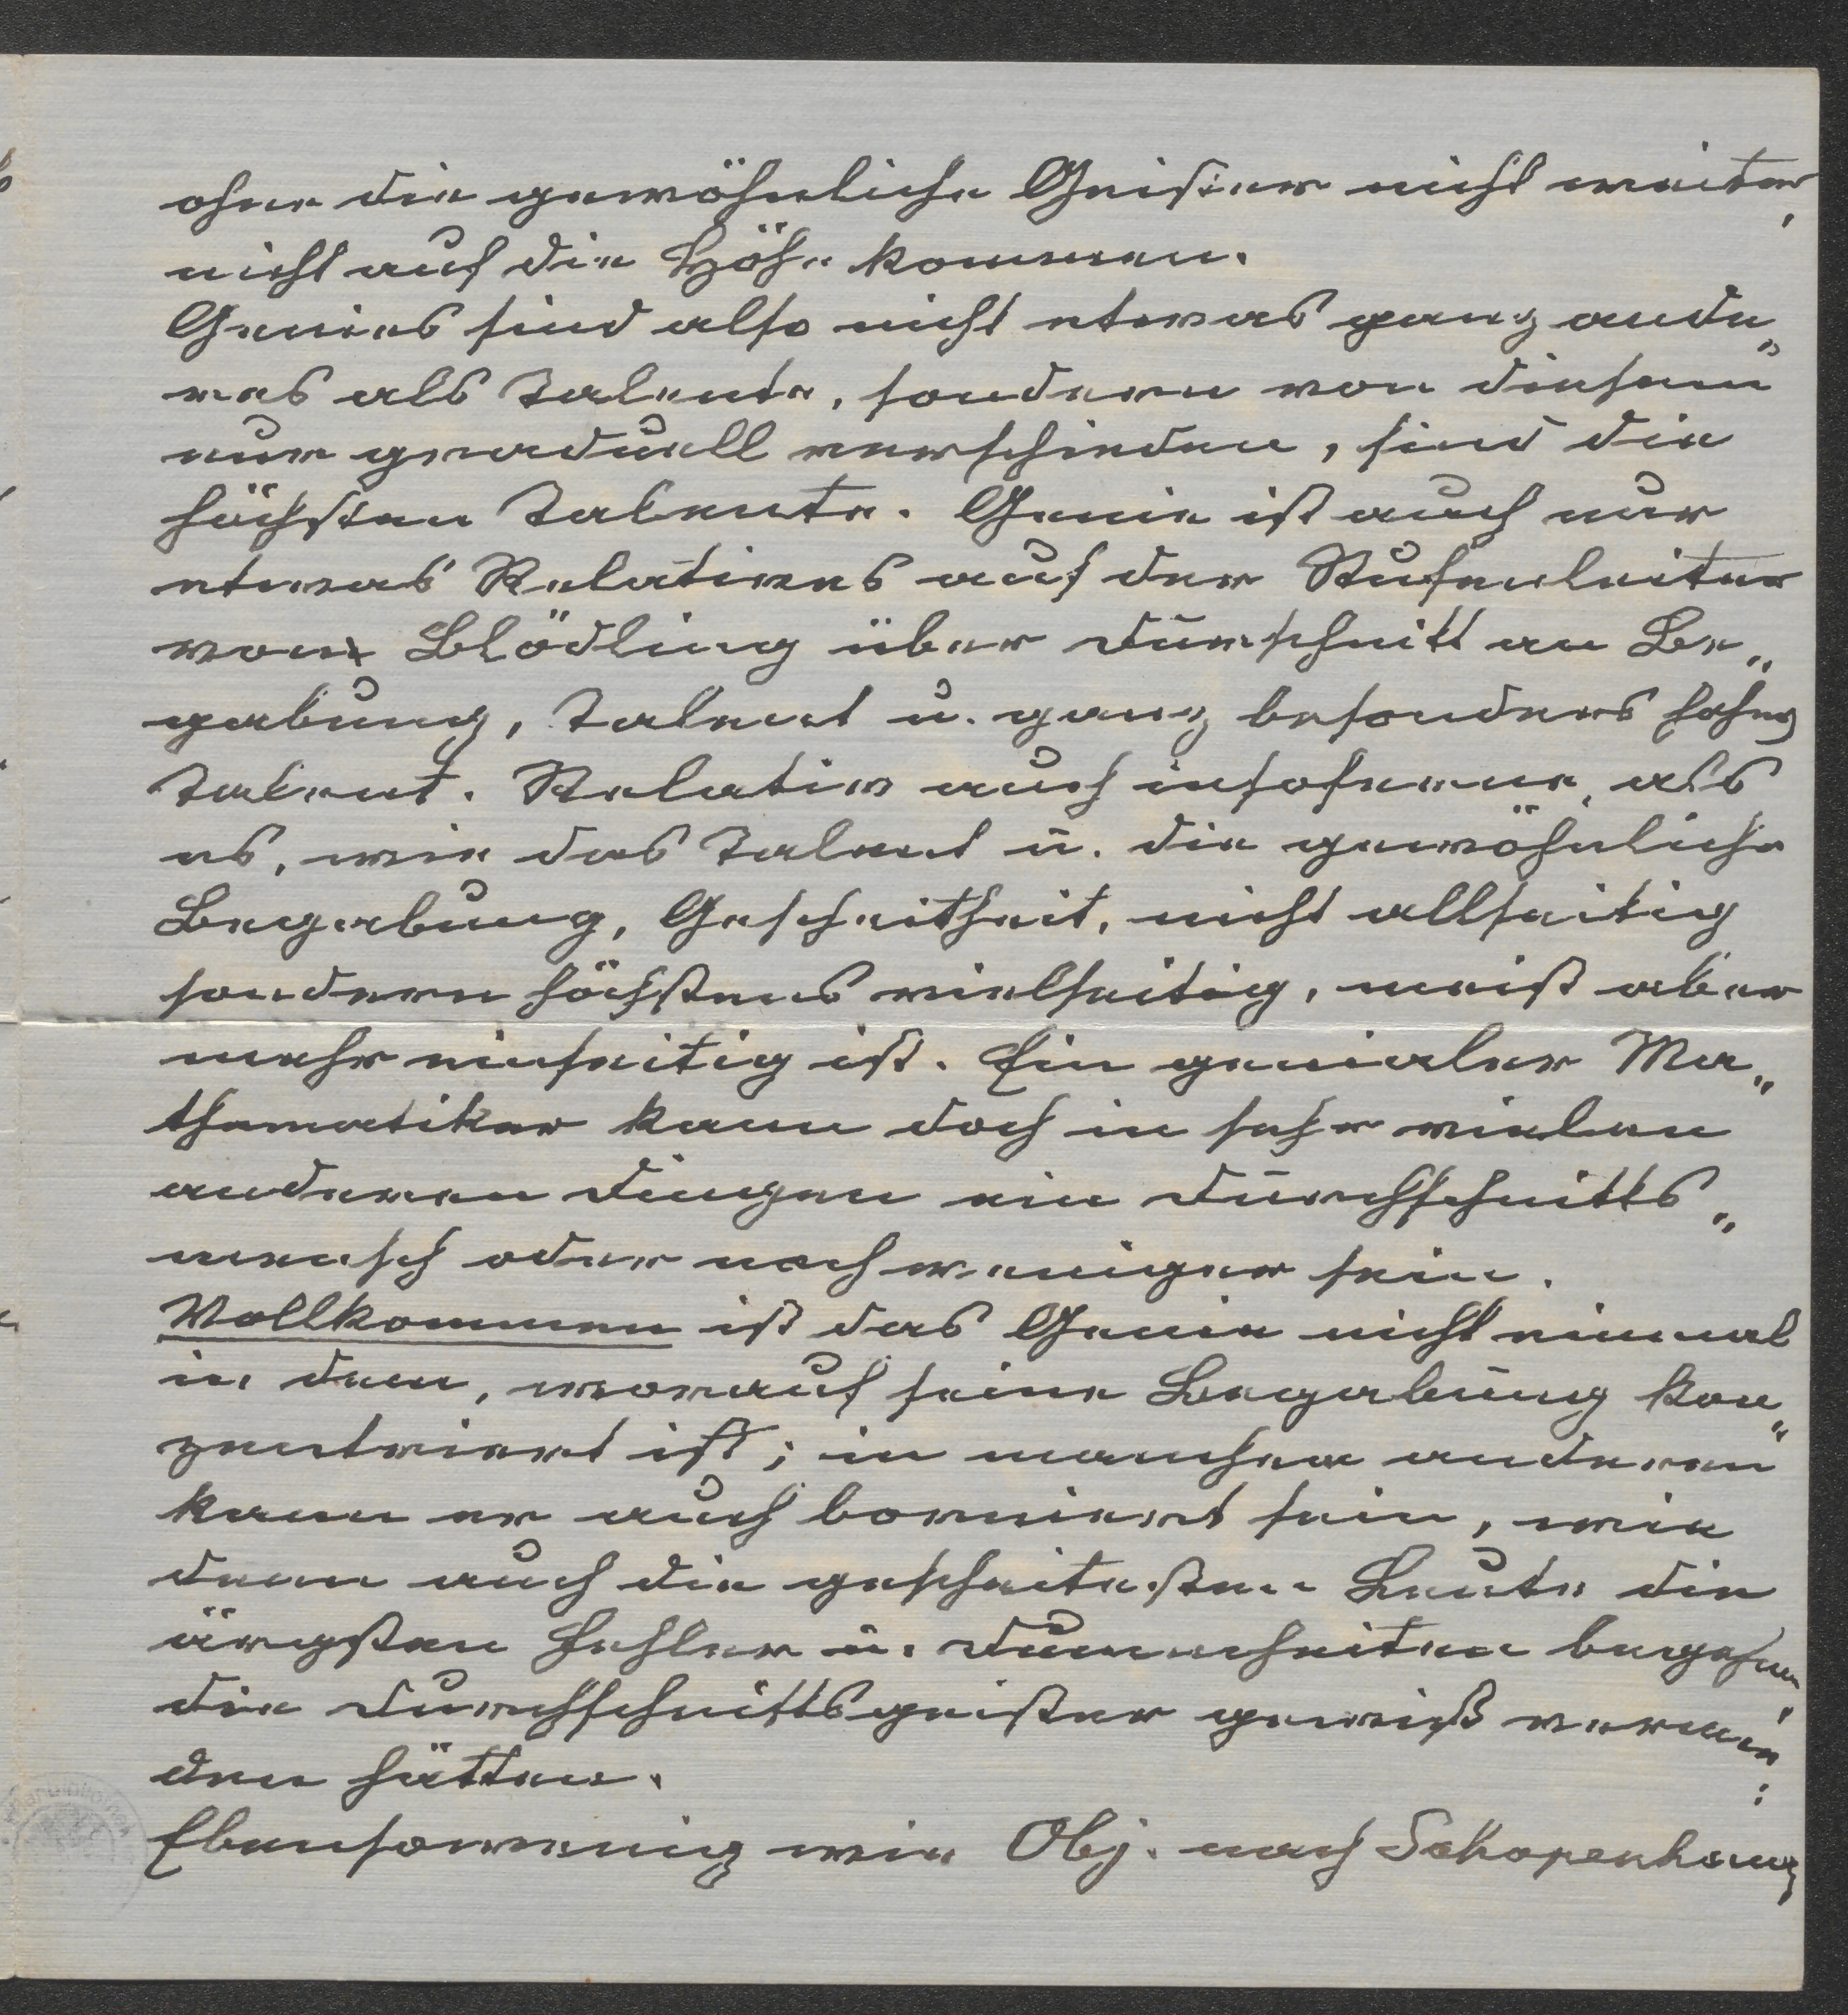 ohne die gewöhnliche Geister nicht weiter,
nicht auf die Höhe kommen.
Genies sind also nicht etwas ganz ande„
res als Talente, sondern von diesem
nur graduell verschieden, sind die
höchsten Talente. Genie ist auch nur
etwas Relatives auf der Stufenleiter
vom Blödling über Durschnitt an Be„
gabung, Talent u. ganz besonders hohes
Talent. Relativ auch insoferne, als
es, wie das Talent u. die gewöhnliche
Begabung, Gescheitheit, nicht allseitig
sondern höchstens vielseitig, meist aber
mehr einseitig ist. Ein genialer Ma„
thematiker kann doch in sehr vielen
anderen Dingen ein Durchschnitts„
mensch oder noch weniger sein.
Vollkommen ist das Genie nicht einmal
in dem, worauf seine Begabung kon„
zentriert ist; in manchen anderen
kann er auch borniert sein, wie
denn auch die gescheitesten Leute die
ärgsten Fehler u. Dummheiten begehen,
die Durchschnittsgeister gewiß vermie:
den hätten.
Ebensowenig wie Obj. nach Schopenhauer